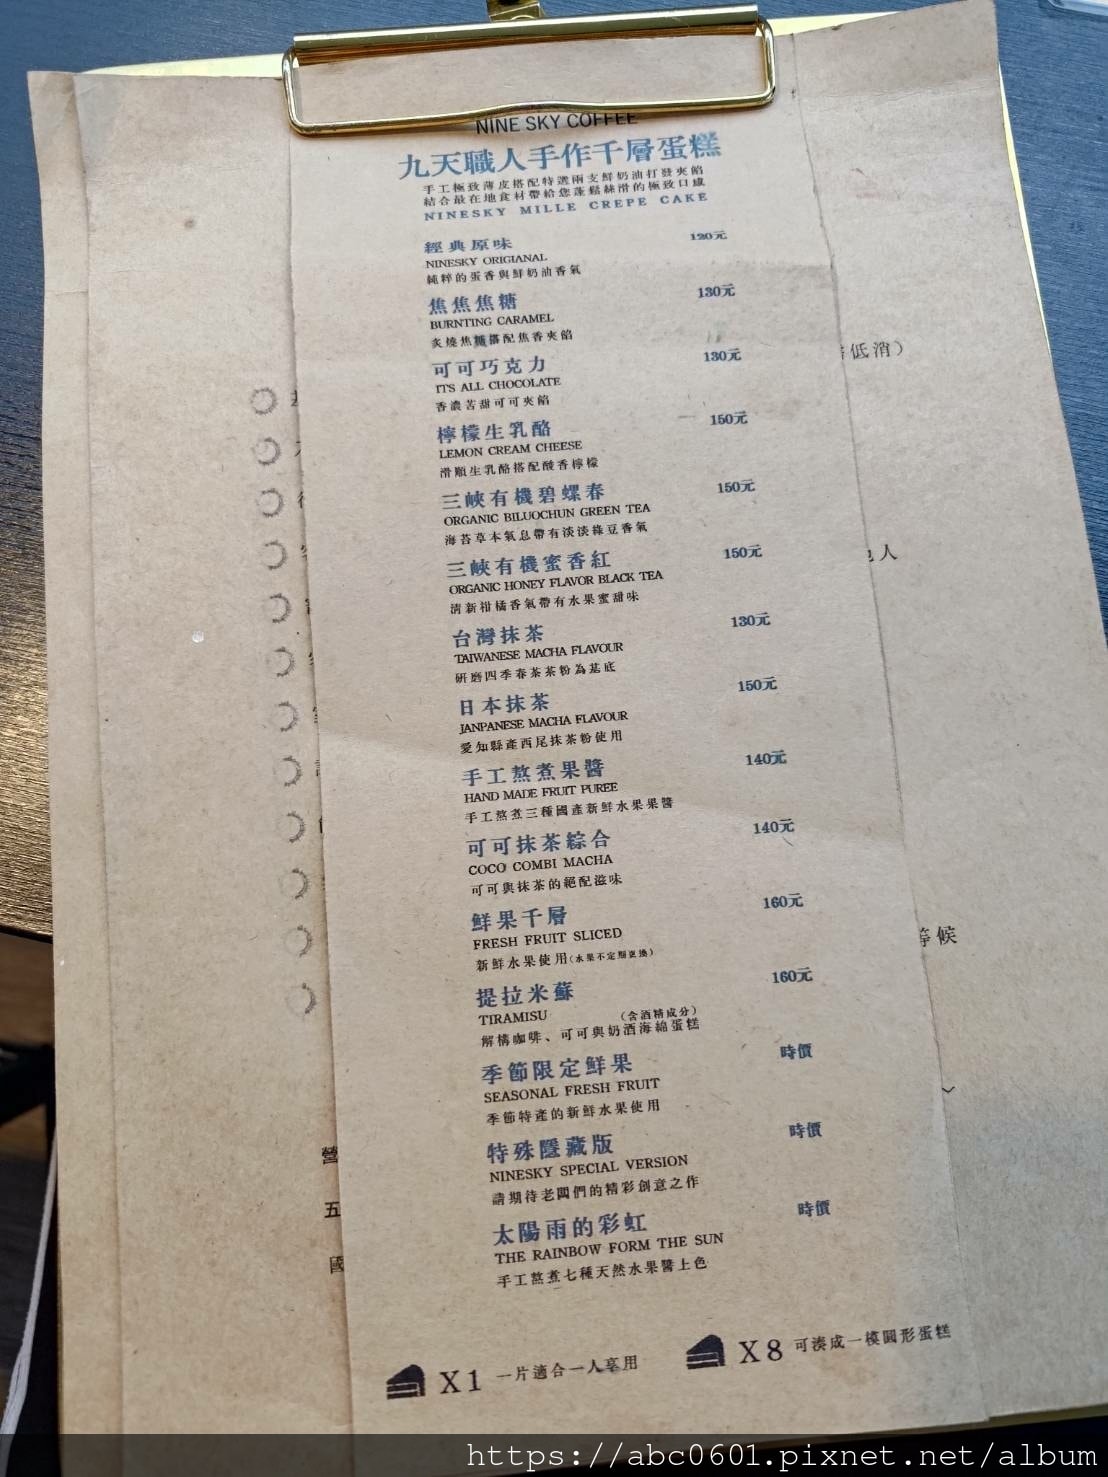 NINE SKY COFFEE
九天職人手作千層蛋糕
手工極致薄皮搭配特選兩支鮮奶油打發夾餡
結合最在地食材帶給您蓬鬆絲滑的極致口感
NINESKY MILLE CREPE CAKE
經典原味 120元
NINESKY ORIGIANAL
純粹的蛋香與鮮奶油香氣
焦焦焦糖 130元
BURNTING CARAMEL
炙燒焦糖搭配焦香夾餡
可可巧克力 130元
ITS ALL CHOCOLATE
香濃苦甜可可夾餡
檸檬生乳酪 150元
LEMON CREAM CHEESE
滑順生乳酪搭配酸香檸檬
三峽有機碧螺春 150元
ORGANIC BILUOCHUN GREEN TEA
海苔草本氣息帶有淡淡綠豆香氣
三峽有機蜜香紅 150元
ORGANIC HONEY FLAVOR BLACK TEA
清新柑橘香氣帶有水果蜜甜味
台灣抹茶 130元
TAIWANESE MACHA FLAVOUR
研磨四季春茶茶粉為基底
日本抹茶 150元
JANPANESE MACHA FLAVOUR
愛知縣產西尾抹茶粉使用
手工熬煮果醬 140元
HAND MADE FRUIT PUREE
手工熬煮三種國產新鮮水果果醬
可可抹茶綜合 140元
COCO COMBI MACHA
可可與抹茶的絕配滋味
鮮果千層 160元
FRESH FRUIT SLICED
新鮮水果使用(水果不定期更換)
提拉米蘇 160元
TIRAMISU (含酒精成分)
解構咖啡、可可與奶酒海綿蛋糕
季節限定鮮果 時價
SEASONAL FRESH FRUIT
季節特產的新鮮水果使用
特殊隱藏版 時價
NINESKY SPECIAL VERSION
請期待老闆們的精彩創意之作
太陽雨的彩虹 時價
THE RAINBOW FORM THE SUN
手工熬煮七種天然水果醬上色
X1 一片適合一人享用
X8 可湊成一模圓形蛋糕
低消)
人
等候
營
五
國
https://abc0601.pixnet.net/album